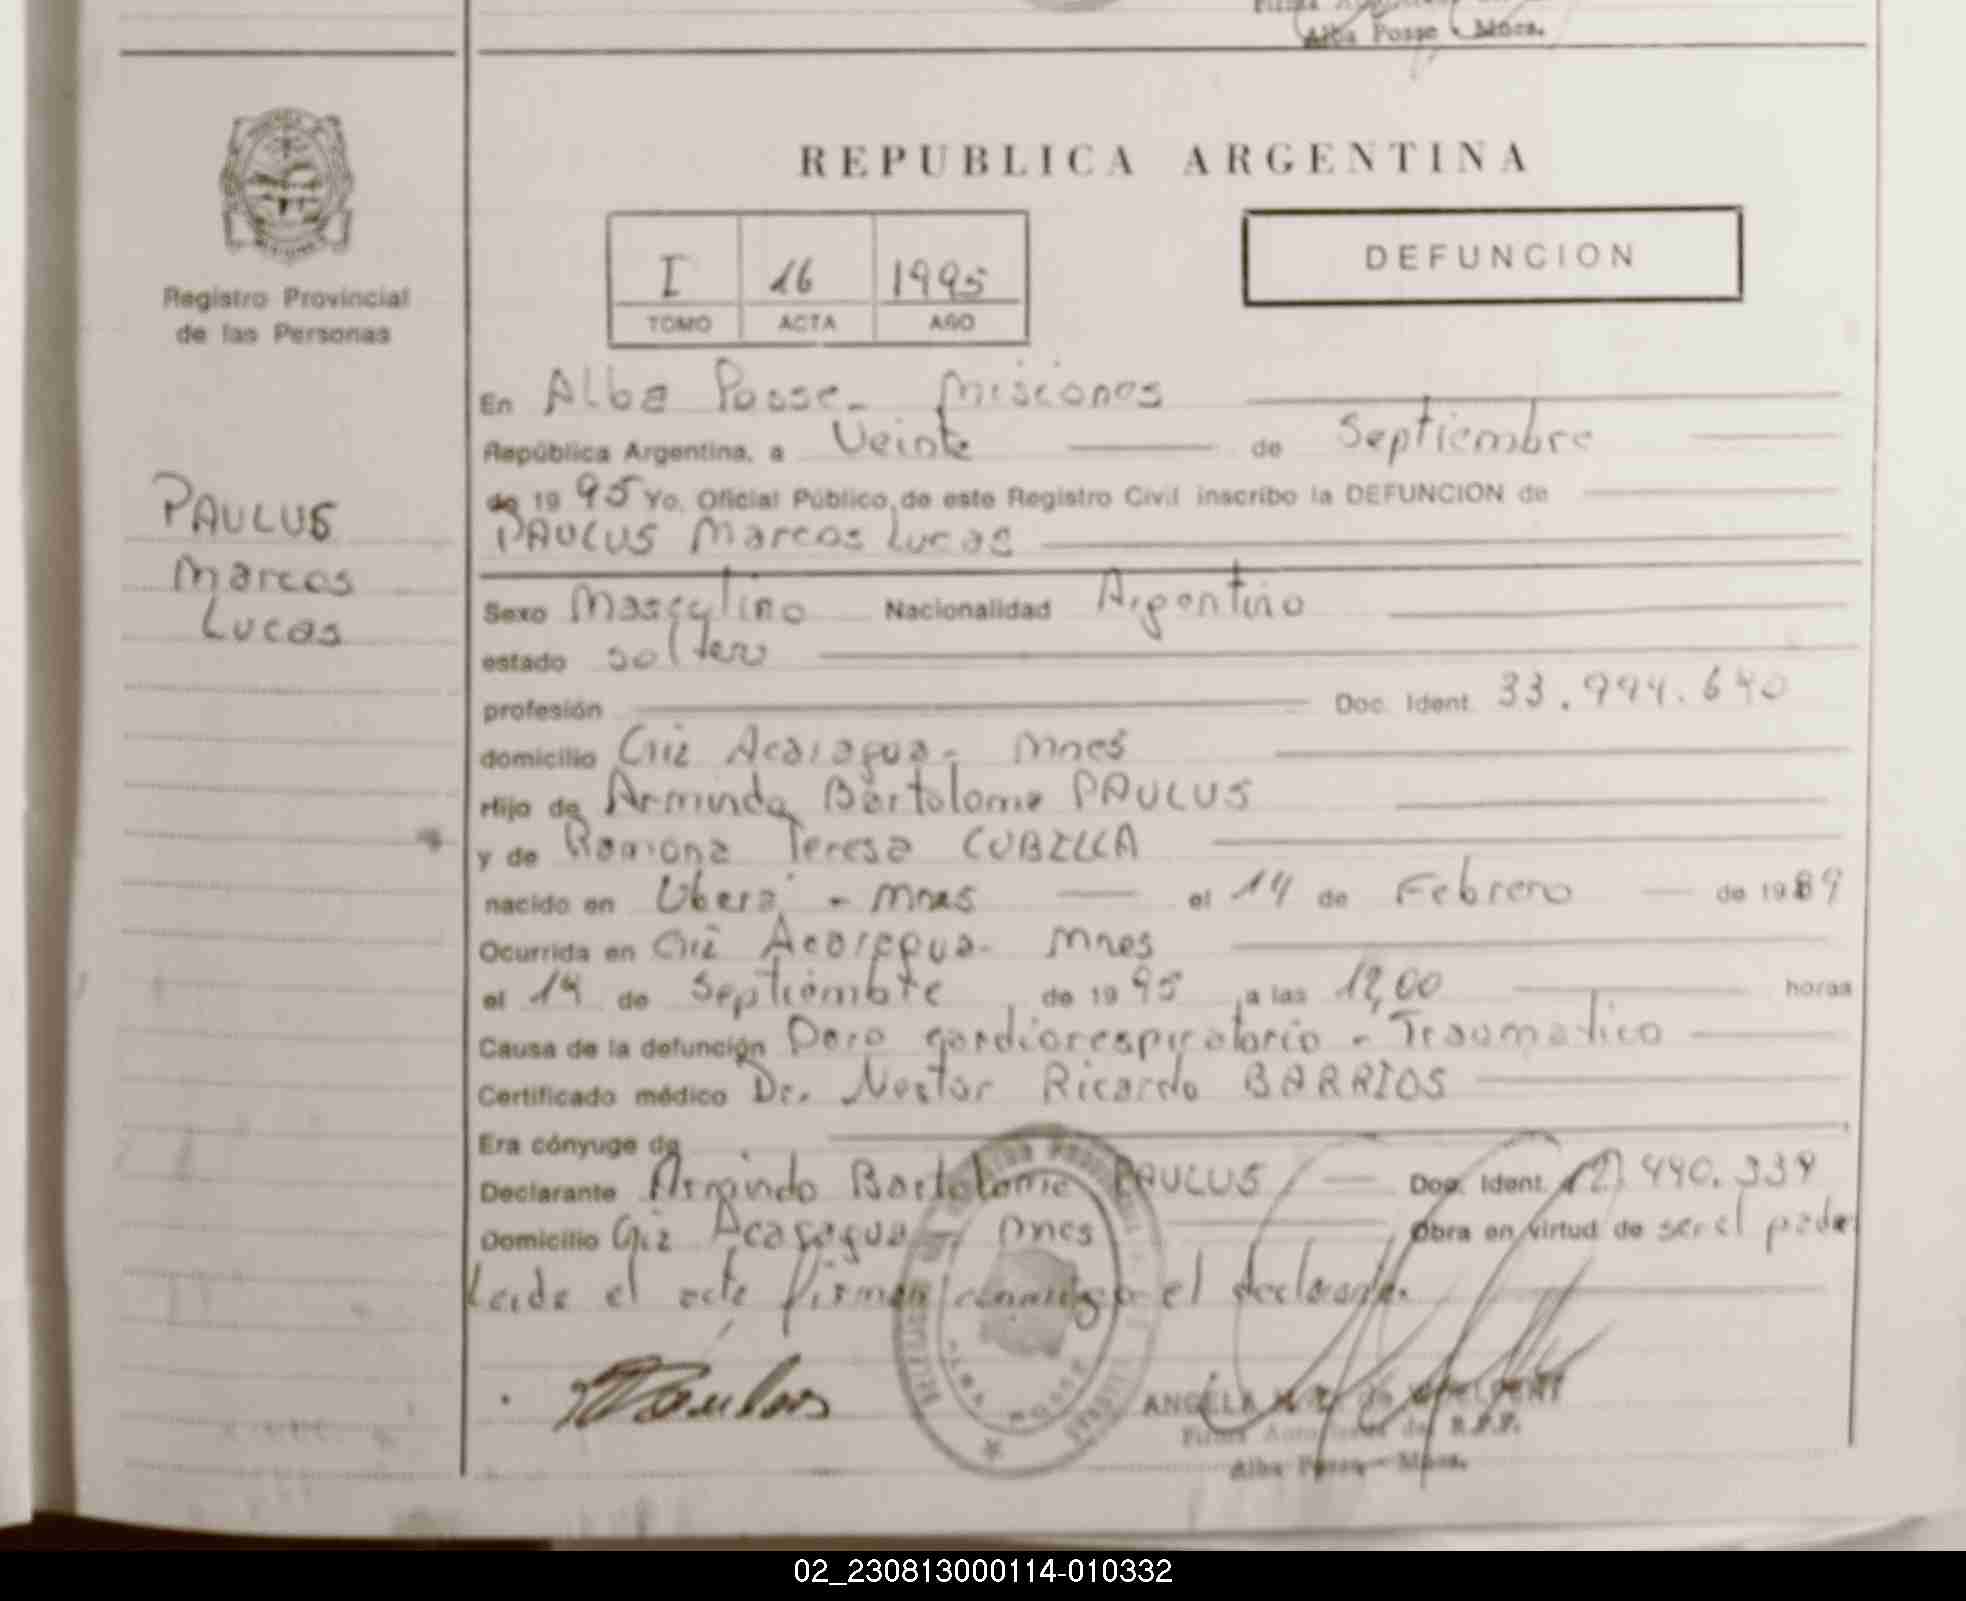 Alba Posse Mnes.
REPUBLICA ARGENTINA
DEFUNCION
I 16 1995
TOMO ACTA AÑO
Registro Provincial
de las Personas
PAULUS
Marcos
Lucas
En Alba Posse - Misiones
República Argentina, a Veinte de Septiembre
de 1995 Yo, Oficial Público de este Registro Civil inscribo la DEFUNCION de
PAULUS Marcos Lucas
Sexo Masculino Nacionalidad Argentino
estado soltero
profesión Doc. Ident.
domicilio Acaragua - Mnes
Hijo de Armindo Bartolome PAULUS
y de Ramona Teresa CUBILLA
nacido en Oberá - Mnes el 14 de Febrero de 1989
Ocurrida en Acaragua - Mnes
el 14 de Septiembre de 1995, a las horas
Causa de la defunción Paro cardiorespiratorio - Traumatico
Certificado médico Dr. Nestor Ricardo BARRIOS
Era cónyuge de
Declarante Armindo Bartolome PAULUS Doc. Ident.
Domicilio Acaragua - Mnes Obra en virtud de ser el padre
Leida el acta firman conmigo el declarante.
Paulus
ANGELA
Firma Autorizada del R.P.P.
Alba Posse - Mnes.
02_230813000114-010332